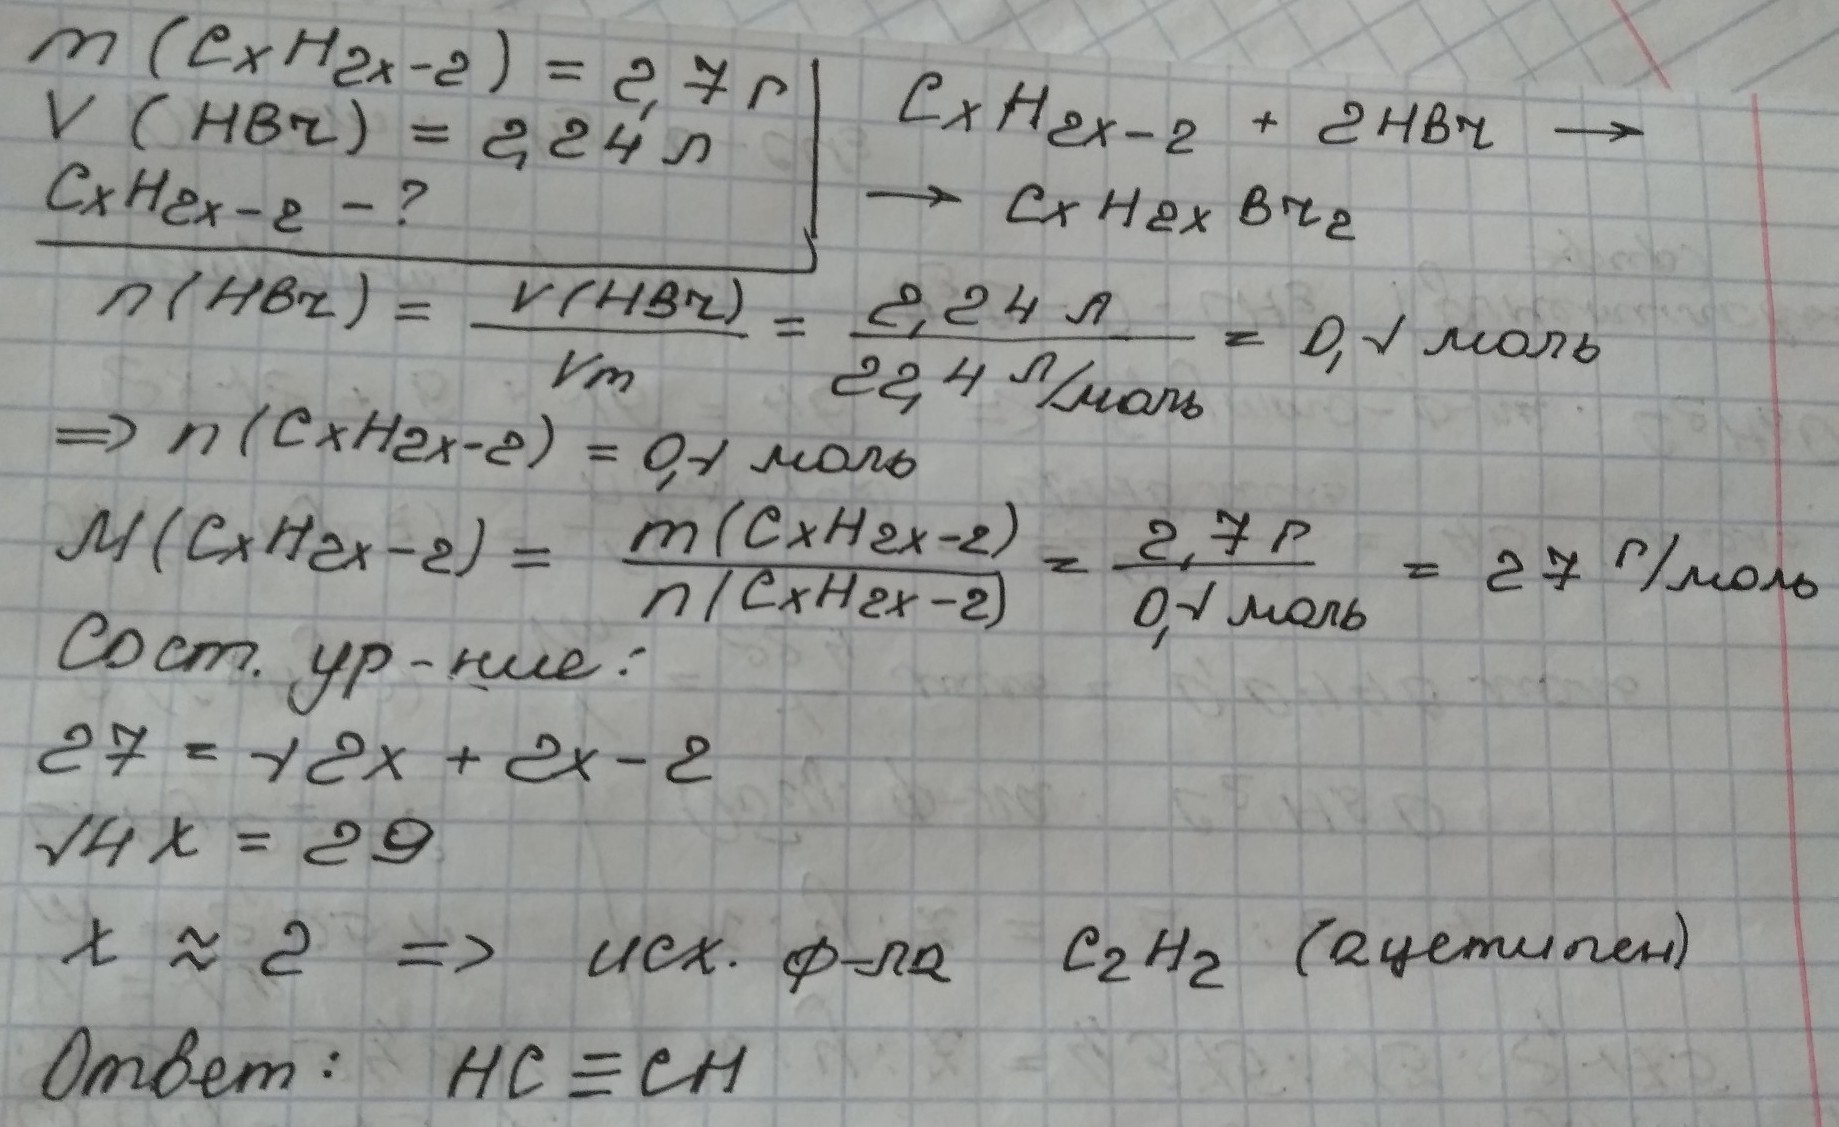 m(CxH2x-2) = 2,7 г
V(HBr) = 2,24 л
CxH2x-2 - ?
CxH2x-2 + 2HBr →
→ CxH2xBr2
n(HBr) = V(HBr)/Vm = 2,24 л/22,4 л/моль = 0,1 моль
=> n(CxH2x-2) = 0,1 моль
M(CxH2x-2) = m(CxH2x-2)/n(CxH2x-2) = 2,7 г/0,1 моль = 27 г/моль
Сост. ур-ние:
27 = 12x + 2x - 2
14x = 29
x ≈ 2 => исх. ф-ла C2H2 (ацетилен)
Ответ: HC≡CH